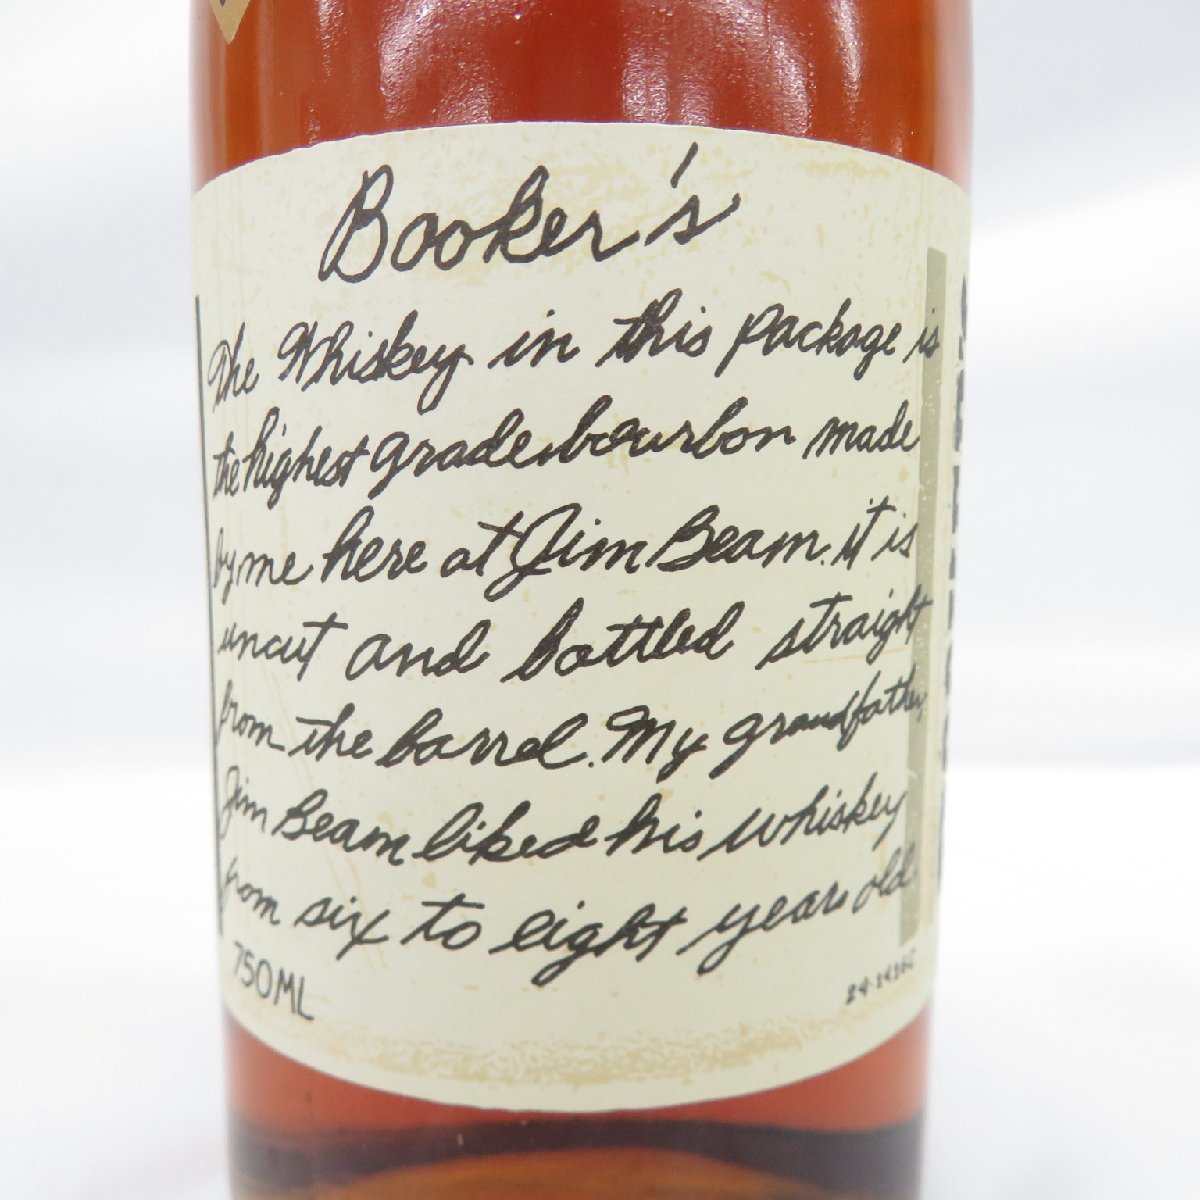 Booker's
The Whiskey in this package is
the highest grade bourbon made
by me here at Jim Beam. it is
uncut and bottled straight
from the barrel. My grandfather,
Jim Beam liked his whiskey
from six to eight years old.
750ML
24-1416C